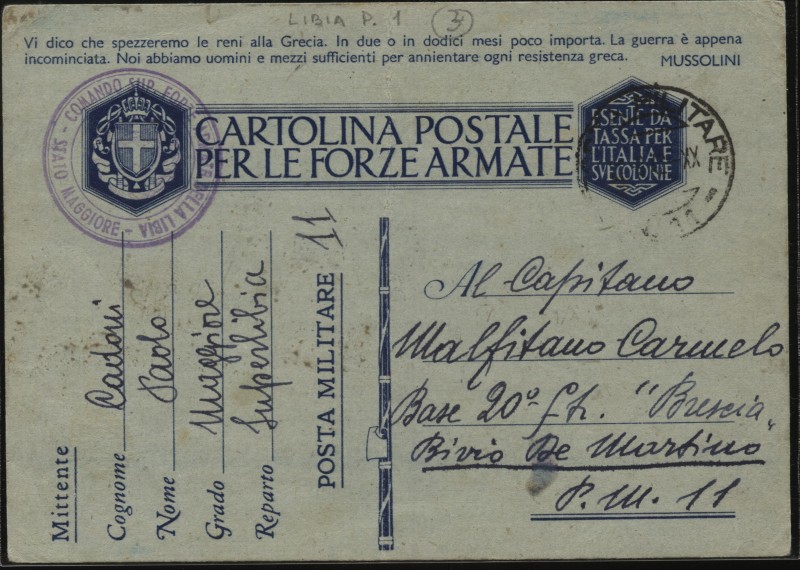 LIBIA P. 1 3
Vi dico che spezzeremo le reni alla Grecia. In due o in dodici mesi poco importa. La guerra è appena
incominciata. Noi abbiamo uomini e mezzi sufficienti per annientare ogni resistenza greca. MUSSOLINI
COMANDO SUP. FOR DELLA LIBIA - STATO MAGGIORE -
CARTOLINA POSTALE
PER LE FORZE ARMATE
ESENTE DA
TASSA PER
L'ITALIA E
SVE COLONIE
ILITARE
XX
11
Mittente
Cognome Cadoni
Nome Paolo
Grado Maggiore
Reparto Superlibia
POSTA MILITARE 11
Al Capitano
Malfitano Carmelo
Base 20° Ftr. "Brescia"
Bivio De Martino
P.M. 11